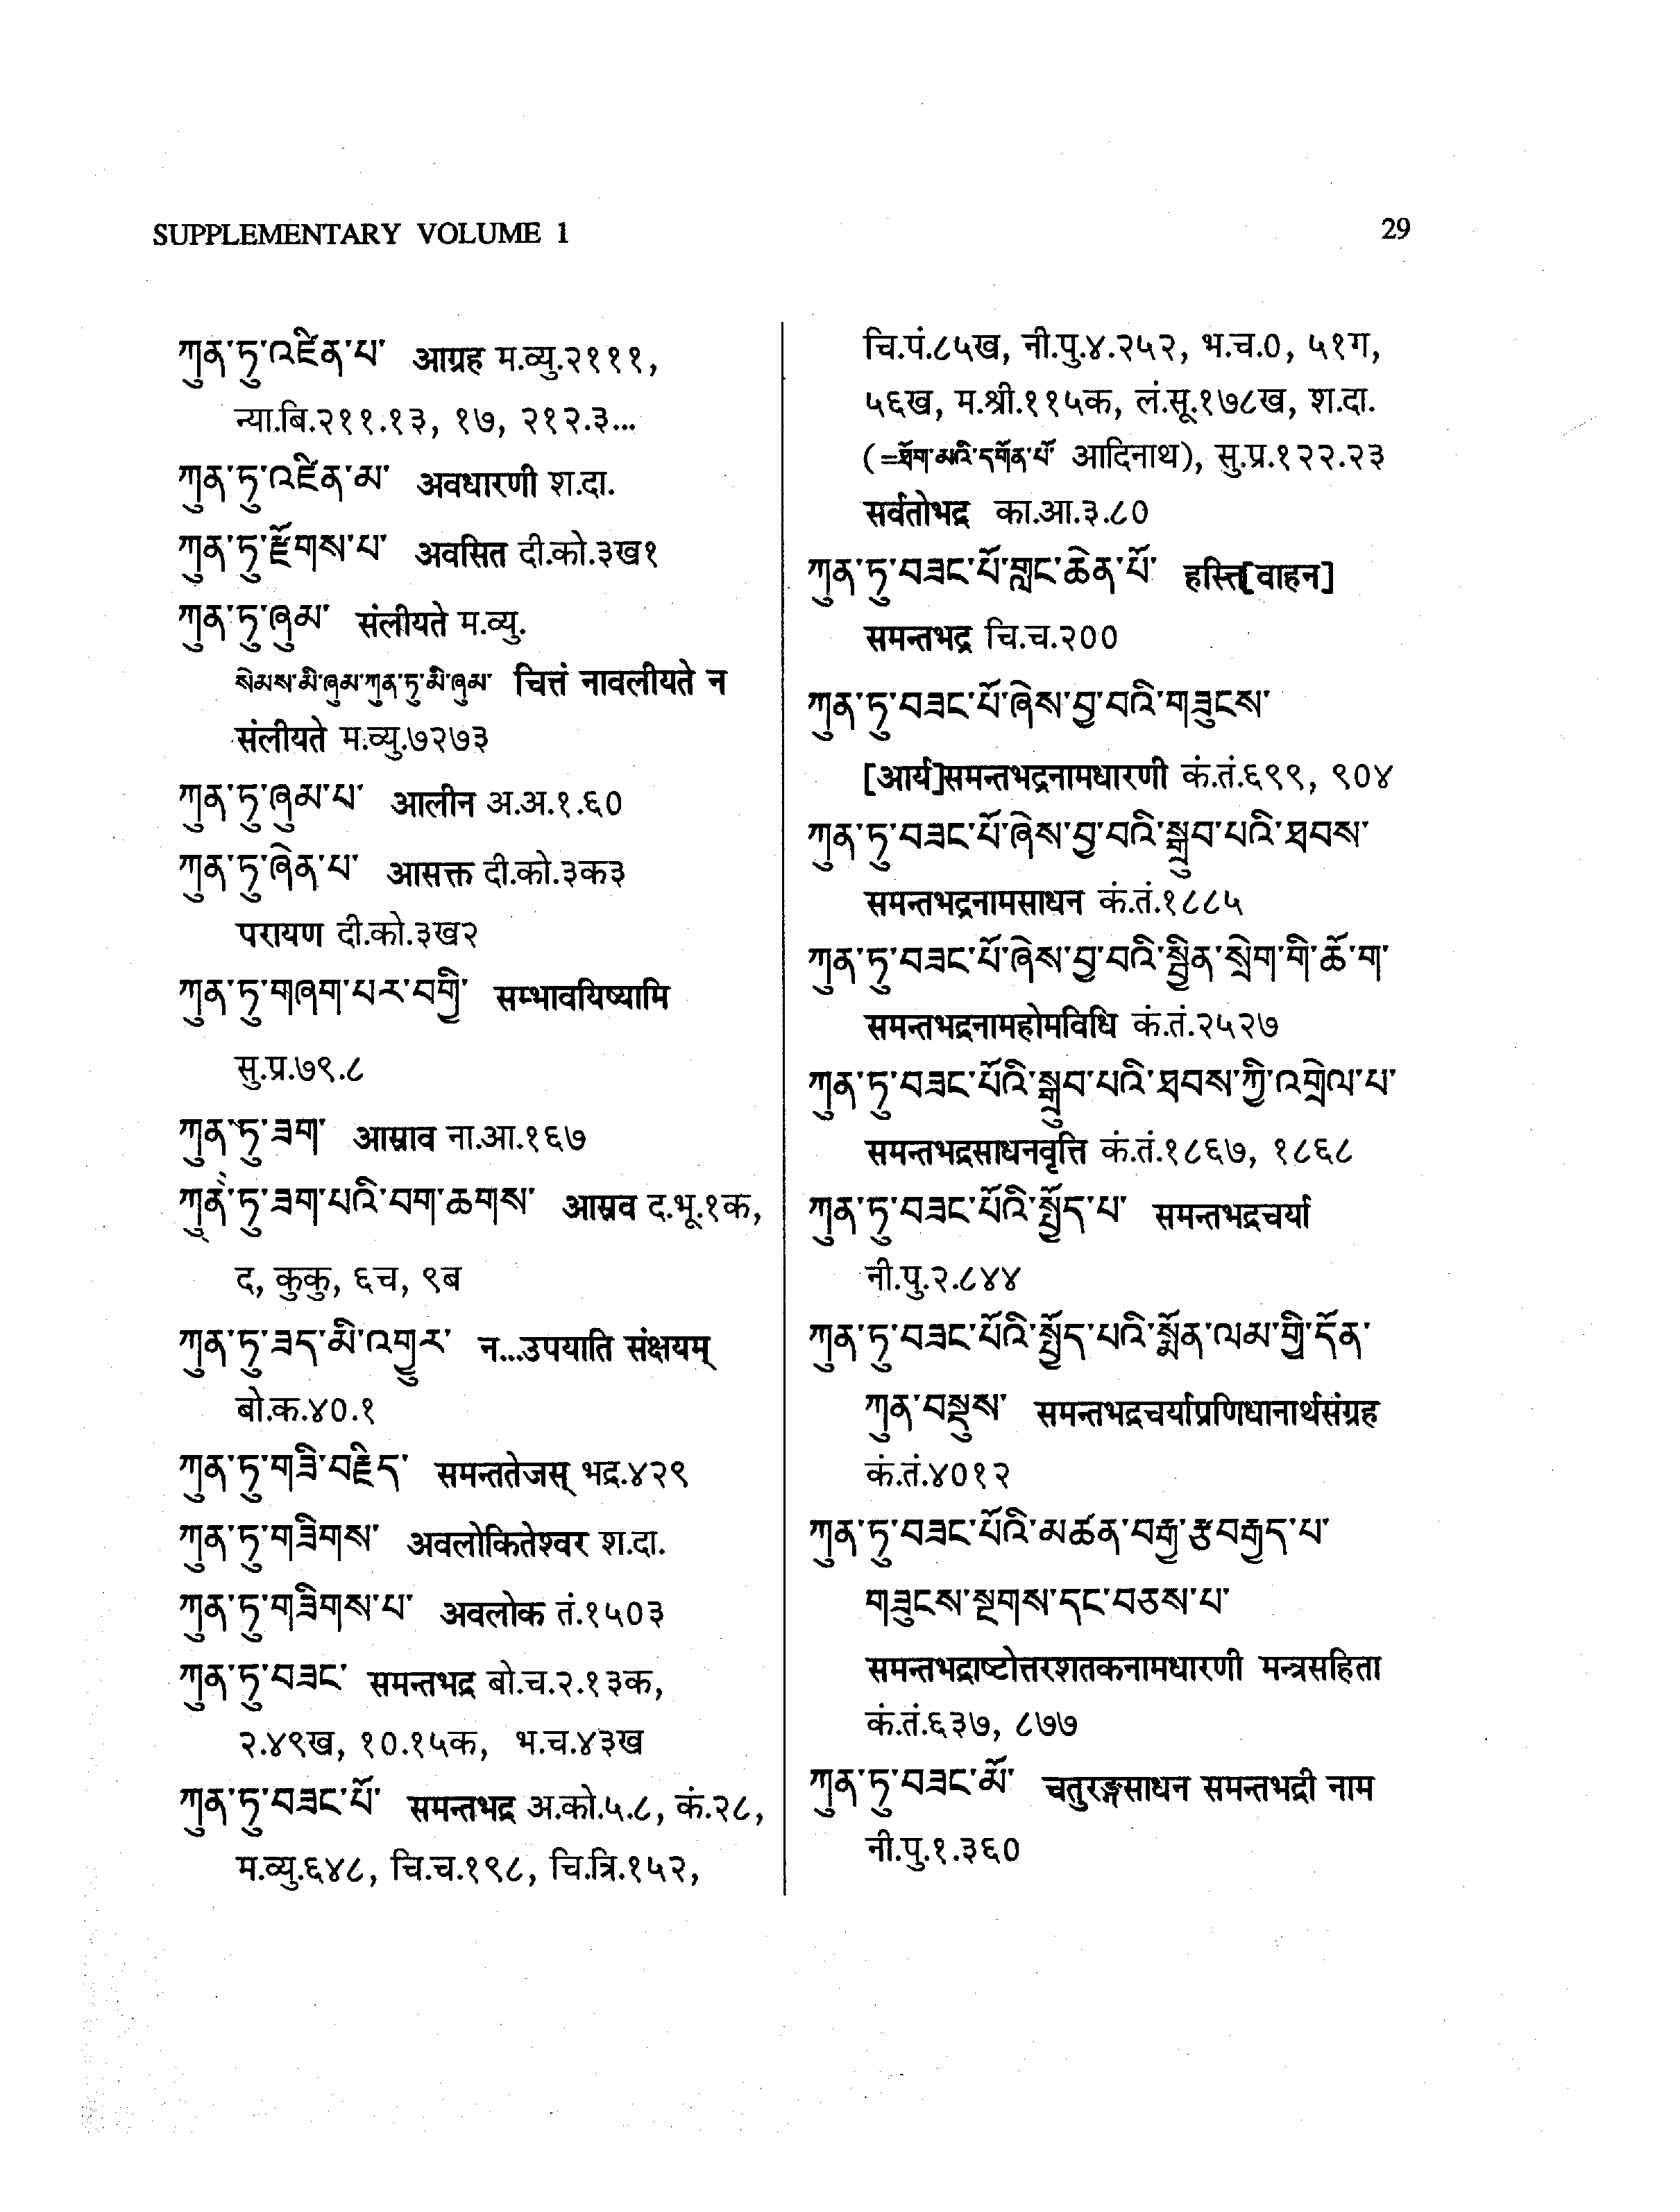 SUPPLEMENTARY VOLUME 1
29
ཀུན་ཏུ་འཛིན་པ་ आग्रह म.व्यु.२१११,
न्या.बि.२११.१३, १७, २१२.३...
ཀུན་ཏུ་འཛིན་མ་ अवधारणी श.दा.
ཀུན་ཏུ་རྫོགས་པ་ अवसित दी.को.३ख१
ཀུན་ཏུ་ཞུམ་ संलीयते म.व्यु.
སེམས་མི་ཞུམ་ཀུན་ཏུ་མི་ཞུམ་ चित्तं नावलीयते न
संलीयते म.व्यु.७२७३
ཀུན་ཏུ་ཞུམ་པ་ आलीन अ.अ.१.६०
ཀུན་ཏུ་ཞེན་པ་ आसक्त दी.को.३क३
परायण दी.को.३ख२
ཀུན་ཏུ་གཞག་པར་བགྱི་ सम्भावयिष्यामि
सु.प्र.७९.८
ཀུན་ཏུ་ཟག་ आस्राव ना.आ.१६७
ཀུན་ཏུ་ཟག་པའི་བག་ཆགས་ आस्रव द.भू.१क,
द, कुकु, ६च, ९ब
ཀུན་ཏུ་ཟད་མི་འགྱུར་ न...उपयाति संक्षयम्
बो.क.४०.१
ཀུན་ཏུ་གཟི་བརྗིད་ समन्ततेजस् भद्र.४२९
ཀུན་ཏུ་གཟིགས་ अवलोकितेश्वर श.दा.
ཀུན་ཏུ་གཟིགས་པ་ अवलोक तं.१५०३
ཀུན་ཏུ་བཟང་ समन्तभद्र बो.च.२.१३क,
२.४९ख, १०.१५क, भ.च.४३ख
ཀུན་ཏུ་བཟང་པོ་ समन्तभद्र अ.को.५.८, कं.२८,
म.व्यु.६४८, चि.च.१९८, चि.त्रि.१५२,
चि.पं.८५ख, नी.पु.४.२५२, भ.च.०, ५१ग,
५६ख, म.श्री.११५क, लं.सू.१७८ख, श.दा.
(=ཐོག་མའི་དགོན་པོ་ आदिनाथ), सु.प्र.१२२.२३
सर्वतोभद्र का.आ.३.८०
ཀུན་ཏུ་བཟང་པོ་གླང་ཆེན་པོ་ हस्ति[वाहन]
समन्तभद्र चि.च.२००
ཀུན་ཏུ་བཟང་པོ་ཞེས་བྱ་བའི་གཟུངས་
[आर्य]समन्तभद्रनामधारणी कं.तं.६९९, ९०४
ཀུན་ཏུ་བཟང་པོ་ཞེས་བྱ་བའི་སྒྲུབ་པའི་ཐབས་
समन्तभद्रनामसाधन कं.तं.१८८५
ཀུན་ཏུ་བཟང་པོ་ཞེས་བྱ་བའི་སྦྱིན་སྲེག་གི་ཆོ་ག་
समन्तभद्रनामहोमविधि कं.तं.२५२७
ཀུན་ཏུ་བཟང་པོའི་སྒྲུབ་པའི་ཐབས་ཀྱི་འགྲེལ་པ་
समन्तभद्रसाधनवृत्ति कं.तं.१८६७, १८६८
ཀུན་ཏུ་བཟང་པོའི་སྤྱོད་པ་ समन्तभद्रचर्या
नी.पु.२.८४४
ཀུན་ཏུ་བཟང་པོའི་སྤྱོད་པའི་སྨོན་ལམ་གྱི་དོན་
ཀུན་བསྡུས་ समन्तभद्रचर्याप्रणिधानार्थसंग्रह
कं.तं.४०१२
ཀུན་ཏུ་བཟང་པོའི་མཚན་བརྒྱ་རྩ་བརྒྱད་པ་
གཟུངས་སྔགས་དང་བཅས་པ་
समन्तभद्राष्टोत्तरशतकनामधारणी मन्त्रसहिता
कं.तं.६३७, ८७७
ཀུན་ཏུ་བཟང་མོ་ चतुरङ्गसाधन समन्तभद्री नाम
नी.पु.१.३६०